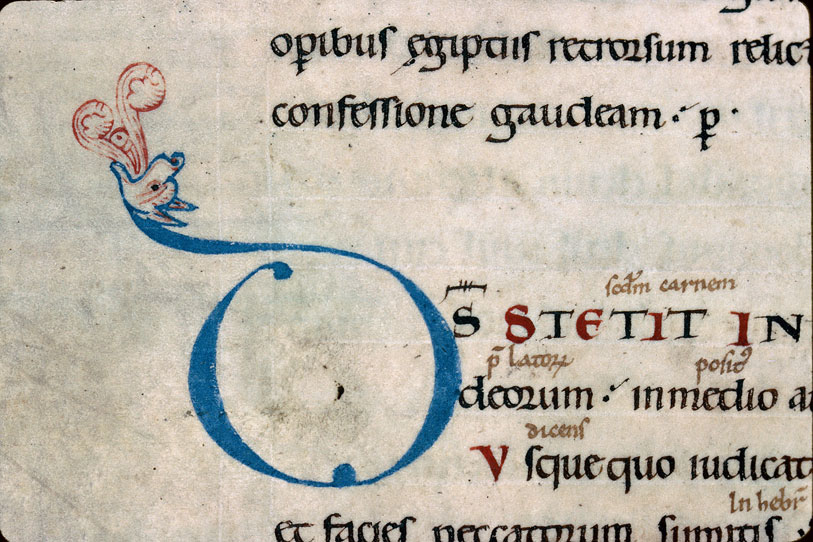 op̱ibus egiptiis retrorsum relict
confessione gaudeam. p̱.
scd̄m carnem
D S̄ STETIT IN
p̄latoꝝ positꝰ
deorum. inmedio au
dicens
Vsquequo iudicat
In hebr̄
et facies peccatorum sumitis